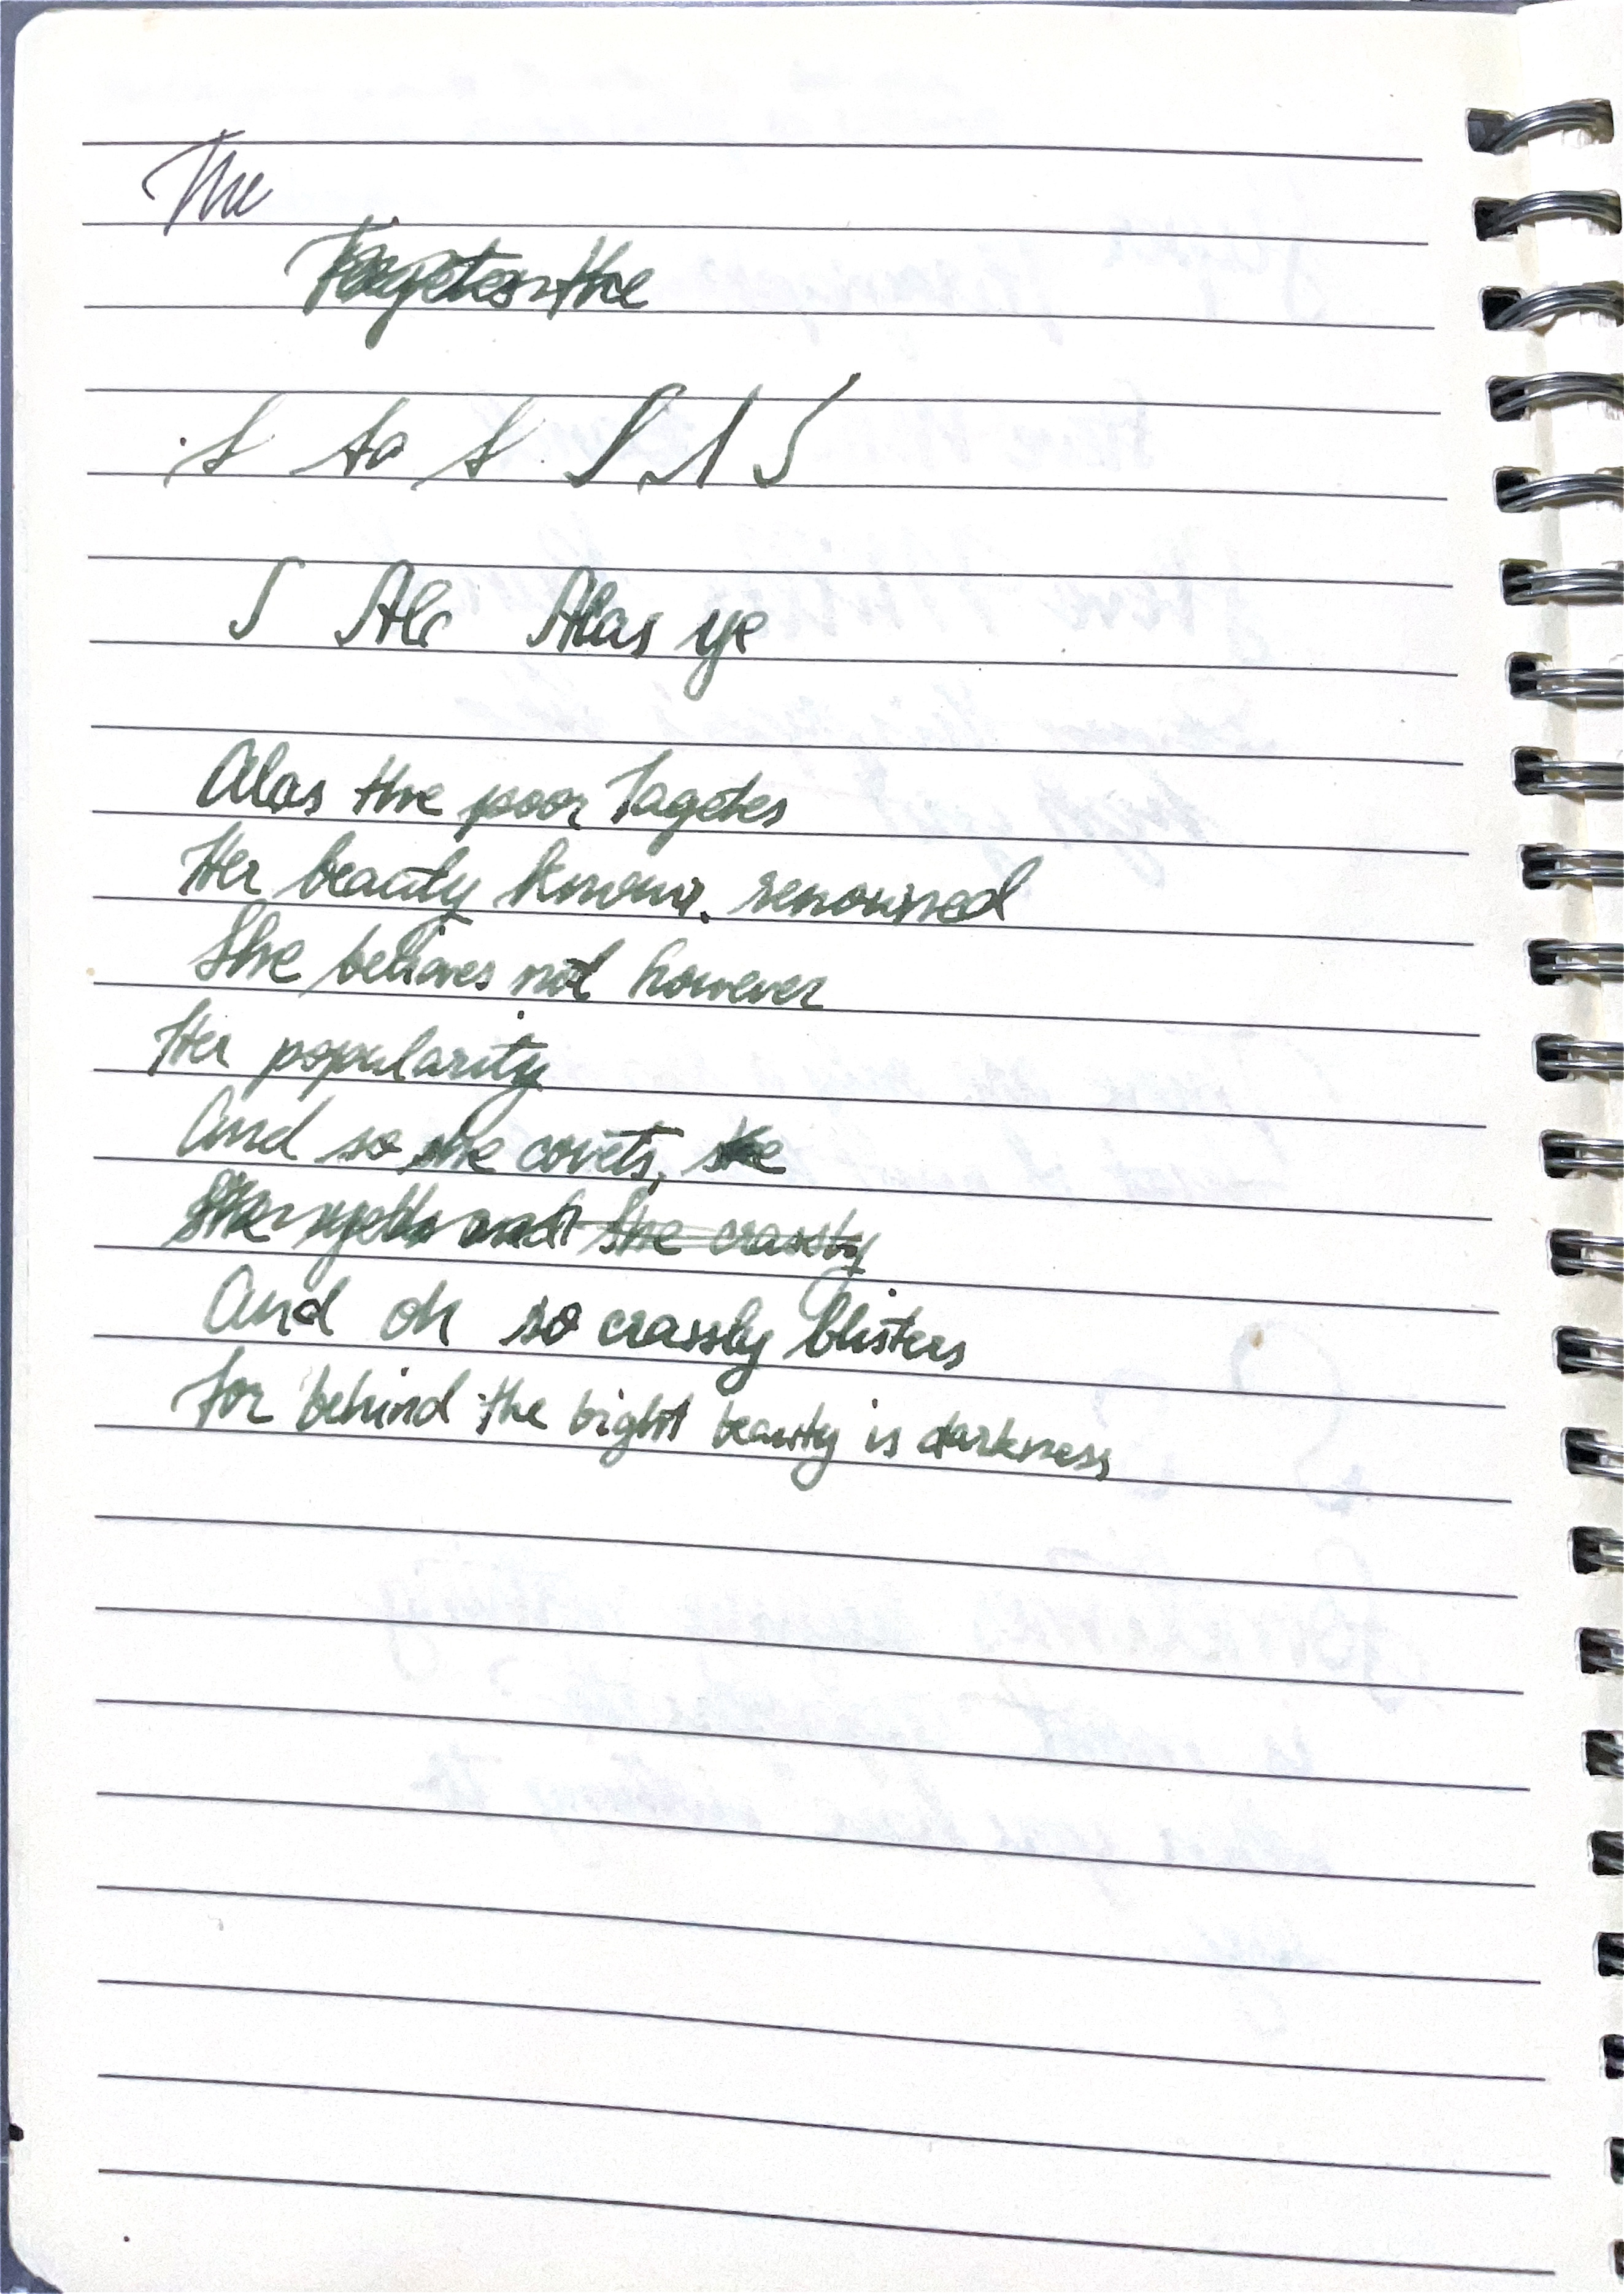 The
Tagetes the
s so s S S S
S Ale Alas ye
Alas the poor Tagetes
Her beauty known, renowned
She believes not however
Her popularity
And so she covets, she
She and she crassly
And oh so crassly blisters
For behind the bight beauty is darkness